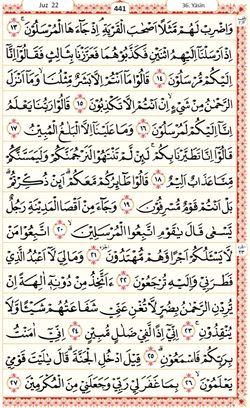 Juz 22
441
36. Yāsin
وَاضْرِبْ لَهُمْ مَثَلًا اَصْحٰبَ الْقَرْيَةِ اِذْ جَاءَهَا الْمُرْسَلُونَ ١٣
اِذْ اَرْسَلْنَا اِلَيْهِمُ اثْنَيْنِ فَكَذَّبُوهُمَا فَعَزَّزْنَا بِثَالِثٍ فَقَالُوا اِنَّا
اِلَيْكُمْ مُرْسَلُونَ ١٤ قَالُوا مَا اَنْتُمْ اِلَّا بَشَرٌ مِثْلُنَا وَمَا اَنْزَلَ
الرَّحْمٰنُ مِنْ شَيْءٍ اِنْ اَنْتُمْ اِلَّا تَكْذِبُونَ ١٥ قَالُوا رَبُّنَا يَعْلَمُ
اِنَّا اِلَيْكُمْ لَمُرْسَلُونَ ١٦ وَمَا عَلَيْنَا اِلَّا الْبَلَاغُ الْمُبِينُ ١٧
قَالُوا اِنَّا تَطَيَّرْنَا بِكُمْ لَئِنْ لَمْ تَنْتَهُوا لَنَرْجُمَنَّكُمْ وَلَيَمَسَّنَّكُمْ
مِنَّا عَذَابٌ اَلِيمٌ ١٨ قَالُوا طَائِرُكُمْ مَعَكُمْ اَئِنْ ذُكِّرْتُمْ
بَلْ اَنْتُمْ قَوْمٌ مُسْرِفُونَ ١٩ وَجَاءَ مِنْ اَقْصَا الْمَدِينَةِ رَجُلٌ
يَسْعٰى قَالَ يَا قَوْمِ اتَّبِعُوا الْمُرْسَلِينَ ٢٠ اتَّبِعُوا مَنْ
لَا يَسْـَٔلُكُمْ اَجْرًا وَهُمْ مُهْتَدُونَ ٢١ وَمَا لِيَ لَا اَعْبُدُ الَّذِي
فَطَرَنِي وَاِلَيْهِ تُرْجَعُونَ ٢٢ ءَاَتَّخِذُ مِنْ دُونِهِ اٰلِهَةً اِنْ
يُرِدْنِ الرَّحْمٰنُ بِضُرٍّ لَا تُغْنِ عَنِّي شَفَاعَتُهُمْ شَيْئًا وَلَا
يُنْقِذُونِ ٢٣ اِنِّي اِذًا لَفِي ضَلَالٍ مُبِينٍ ٢٤ اِنِّي اٰمَنْتُ
بِرَبِّكُمْ فَاسْمَعُونِ ٢٥ قِيلَ ادْخُلِ الْجَنَّةَ قَالَ يَا لَيْتَ قَوْمِي
يَعْلَمُونَ ٢٦ بِمَا غَفَرَ لِي رَبِّي وَجَعَلَنِي مِنَ الْمُكْرَمِينَ ٢٧